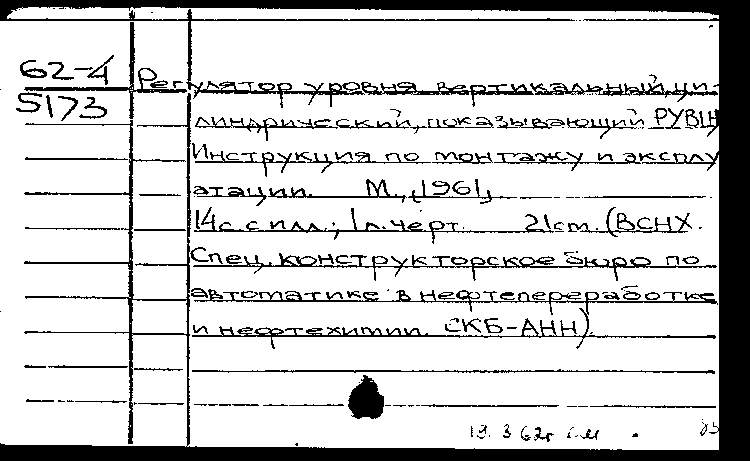 62-4
5173
Регулятор уровня вертикальный, ци-
линдрический, показывающий РУВЦ
Инструкция по монтажу и эксплу
атации. М., 1961,
14с. с илл.; 1 л. черт. 21см. (ВСНХ.
Спец. конструкторское бюро по
автоматике в нефтепереработке
и нефтехимии. СКБ-АНН).
19. 3 62г